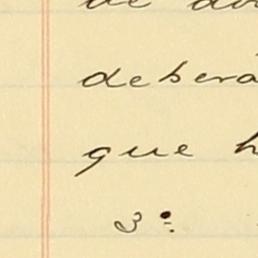 de
deberá
que
3º